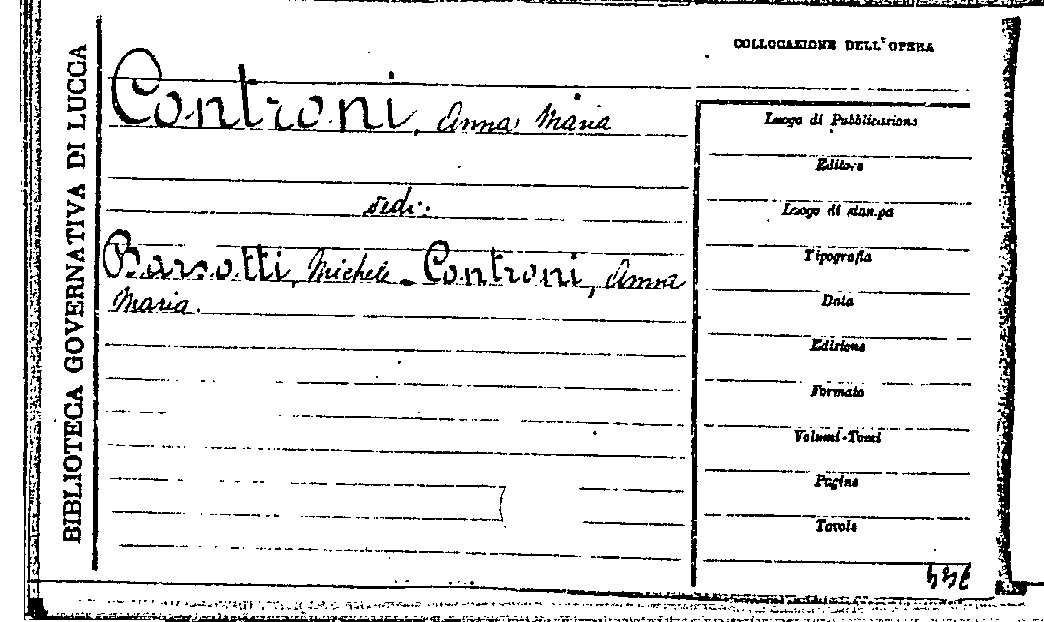 BIBLIOTECA GOVERNATIVA DI LUCCA
COLLOCAZIONE DELL'OPERA
Controni, Anna Maria
vedi:
Barsotti, Michele - Controni, Anna
Maria.
Luogo di Pubblicazione
Editore
Luogo di stampa
Tipografia
Data
Edizione
Formato
Volumi-Tomi
Pagine
Tavole